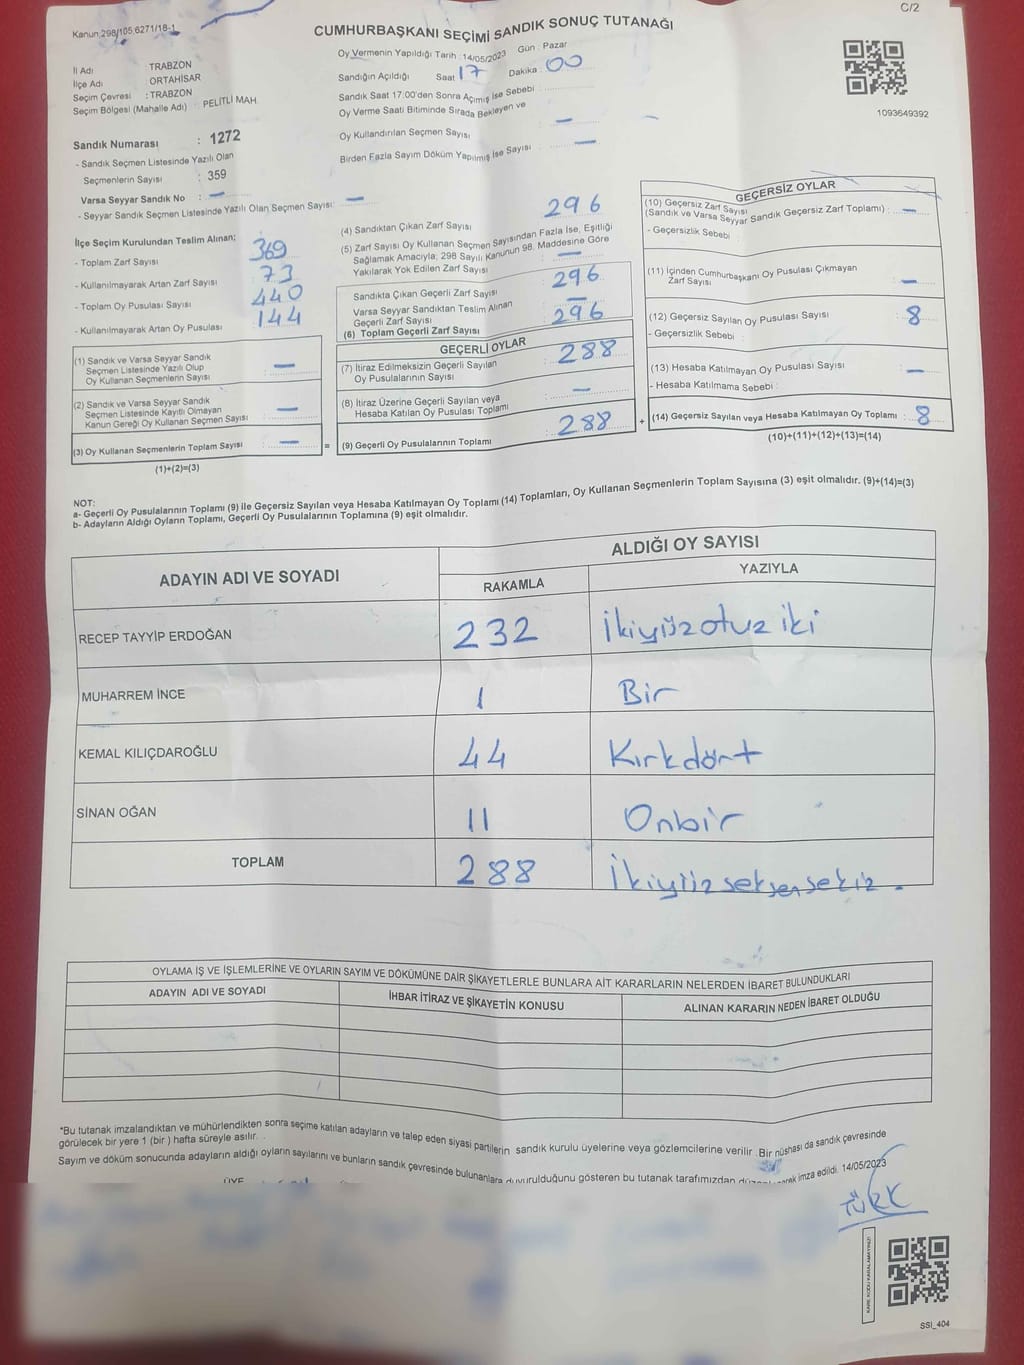 Kanun 298/105,6271/18-1
C/2
CUMHURBAŞKANI SEÇİMİ SANDIK SONUÇ TUTANAĞI
Oy Vermenin Yapıldığı Tarih : 14/05/2023 Gün : Pazar
İl Adı : TRABZON
İlçe Adı : ORTAHİSAR
Seçim Çevresi : TRABZON
Seçim Bölgesi (Mahalle Adı) : PELİTLİ MAH.
Sandığın Açıldığı Saat 17 Dakika : 00
Sandık Saat 17:00'den Sonra Açımış İse Sebebi :
Oy Verme Saati Bitiminde Sırada Bekleyen ve
Oy Kullandırılan Seçmen Sayısı : —
Birden Fazla Sayım Döküm Yapılmış İse Sayısı : —
1093649392
Sandık Numarası : 1272
- Sandık Seçmen Listesinde Yazılı Olan
Seçmenlerin Sayısı : 359
Varsa Seyyar Sandık No : —
- Seyyar Sandık Seçmen Listesinde Yazılı Olan Seçmen Sayısı: —
İlçe Seçim Kurulundan Teslim Alınan:
- Toplam Zarf Sayısı 369
- Kullanılmayarak Artan Zarf Sayısı 73
- Toplam Oy Pusulası Sayısı 440
- Kullanılmayarak Artan Oy Pusulası 144
(1) Sandık ve Varsa Seyyar Sandık
Seçmen Listesinde Yazılı Olup
Oy Kullanan Seçmenlerin Sayısı : —
(2) Sandık ve Varsa Seyyar Sandık
Seçmen Listesinde Kayıtlı Olmayan
Kanun Gereği Oy Kullanan Seçmen Sayısı : —
(3) Oy Kullanan Seçmenlerin Toplam Sayısı : — =
(1)+(2)=(3)
(4) Sandıktan Çıkan Zarf Sayısı 296
(5) Zarf Sayısı Oy Kullanan Seçmen Sayısından Fazla İse, Eşitliği
Sağlamak Amacıyla; 298 Sayılı Kanunun 98. Maddesine Göre
Yakılarak Yok Edilen Zarf Sayısı —
Sandıkta Çıkan Geçerli Zarf Sayısı 296
Varsa Seyyar Sandıktan Teslim Alınan
Geçerli Zarf Sayısı —
(6) Toplam Geçerli Zarf Sayısı 296
GEÇERLİ OYLAR
(7) İtiraz Edilmeksizin Geçerli Sayılan
Oy Pusulalarının Sayısı 288
(8) İtiraz Üzerine Geçerli Sayılan veya
Hesaba Katılan Oy Pusulası Toplamı : —
(9) Geçerli Oy Pusulalarının Toplamı : 288 +
GEÇERSİZ OYLAR
(10) Geçersiz Zarf Sayısı
(Sandık ve Varsa Seyyar Sandık Geçersiz Zarf Toplamı) : —
- Geçersizlik Sebebi :
(11) İçinden Cumhurbaşkanı Oy Pusulası Çıkmayan
Zarf Sayısı —
(12) Geçersiz Sayılan Oy Pusulası Sayısı : 8
- Geçersizlik Sebebi :
(13) Hesaba Katılmayan Oy Pusulası Sayısı : —
- Hesaba Katılmama Sebebi :
(14) Geçersiz Sayılan veya Hesaba Katılmayan Oy Toplamı : 8
(10)+(11)+(12)+(13)=(14)
NOT:
a- Geçerli Oy Pusulalarının Toplamı (9) ile Geçersiz Sayılan veya Hesaba Katılmayan Oy Toplamı (14) Toplamları, Oy Kullanan Seçmenlerin Toplam Sayısına (3) eşit olmalıdır. (9)+(14)=(3)
b- Adayların Aldığı Oyların Toplamı, Geçerli Oy Pusulalarının Toplamına (9) eşit olmalıdır.
ADAYIN ADI VE SOYADI ALDIĞI OY SAYISI
RAKAMLA YAZIYLA
RECEP TAYYİP ERDOĞAN 232 İkiyüzotuz iki
MUHARREM İNCE 1 Bir
KEMAL KILIÇDAROĞLU 44 Kırkdört
SİNAN OĞAN 11 Onbir
TOPLAM 288 İkiyüzseksensekiz.
OYLAMA İŞ VE İŞLEMLERİNE VE OYLARIN SAYIM VE DÖKÜMÜNE DAİR ŞİKAYETLERLE BUNLARA AİT KARARLARIN NELERDEN İBARET BULUNDUKLARI
ADAYIN ADI VE SOYADI İHBAR İTİRAZ VE ŞİKAYETİN KONUSU ALINAN KARARIN NEDEN İBARET OLDUĞU
*Bu tutanak imzalandıktan ve mühürlendikten sonra seçime katılan adayların ve talep eden siyasi partilerin sandık kurulu üyelerine veya gözlemcilerine verilir .Bir nüshası da sandık çevresinde
görülecek bir yere 1 (bir ) hafta süreyle asılır.
Sayım ve döküm sonucunda adayların aldığı oyların sayılarını ve bunların sandık çevresinde bulunanlara duyurulduğunu gösteren bu tutanak tarafımızdan imza edildi. 14/05/2023
ÜYE
TÜRK
KARE KODU KARALAMAYINIZ!
SSI_404